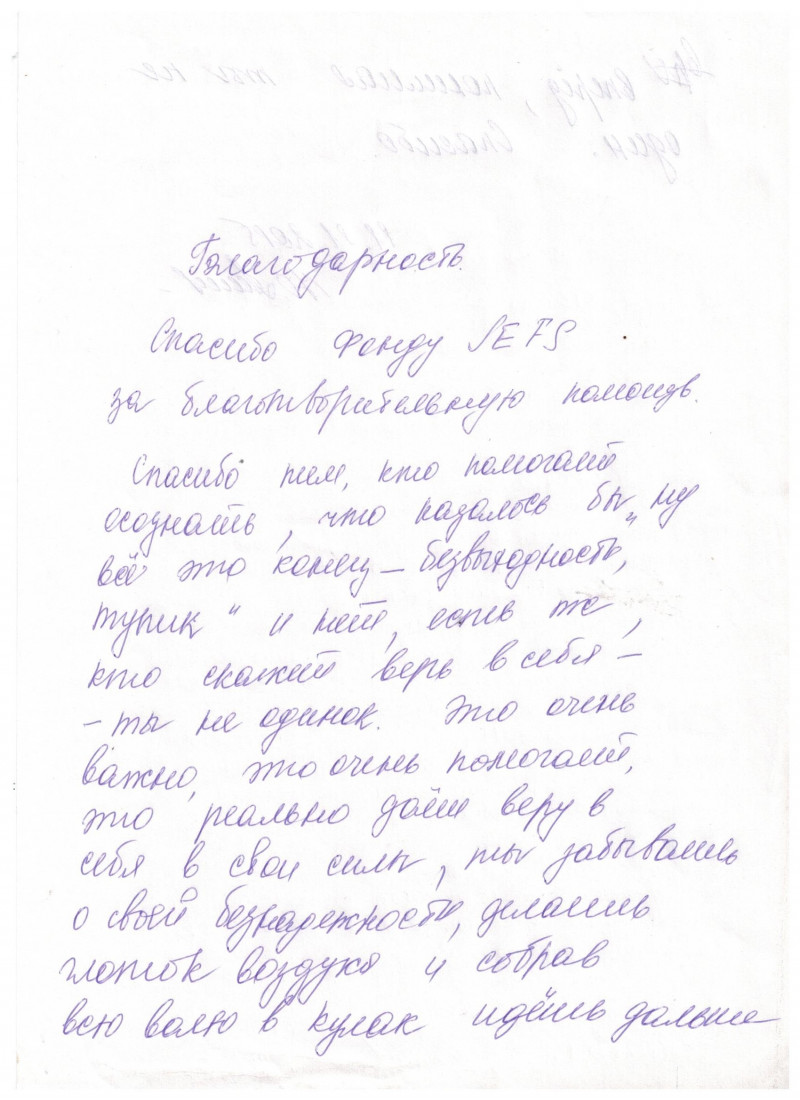 Благодарность.
Спасибо Фонду SEFS
за благотворительную помощь.
Спасибо тем, кто помогает
осознать, что казалось бы „ну
всё это конец – безвыходность,
тупик“ и нет, есть те,
кто скажет верь в себя –
– ты не одинок. Это очень
важно, это очень помогает,
это реально даёт веру в
себя в свои силы, ты забываешь
о своей безнадежности, делаешь
глоток воздуха и собрав
всю волю в кулак идёшь дальше